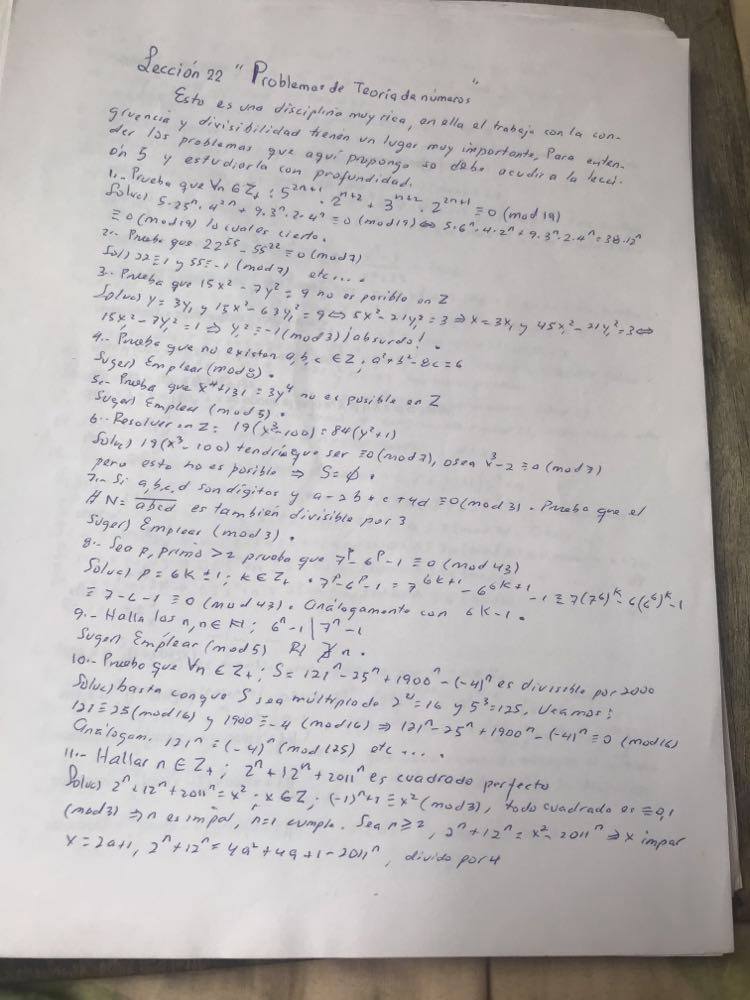 Lección 22 "Problemas de Teoría de números"
Esto es una disciplina muy rica, en ella el trabajo con la con-
gruencia y divisibilidad tienen un lugar muy importante, Para enten-
der los problemas que aquí propongo se debe acudir a la lecci-
ón 5 y estudiarla con profundidad.
1.- Prueba que ∀n∈Z₊ : 5²ⁿ⁺¹ · 2ⁿ⁺² + 3ⁿ⁺² · 2²ⁿ⁺¹ ≡ 0 (mod 19)
Soluc) 5·25ⁿ·4·2ⁿ + 9·3ⁿ·2·4ⁿ ≡ 0 (mod 19) ⇔ 5·6ⁿ·4·2ⁿ + 9·3ⁿ·2·4ⁿ = 38·12ⁿ
≡ 0 (mod 19) lo cual es cierto.
2.- Prueba que 22⁵⁵ - 55²² ≡ 0 (mod 7)
Sol) 22≡1 y 55≡-1 (mod 7) etc....
3.- Prueba que 15x² - 7y² = 9 no es posible en Z
Soluc) y = 3y₁ y 15x² - 63y₁² = 9 ⇔ 5x² - 21y₁² = 3 ⇒ x = 3x₁ y 45x₁² - 21y₁² = 3 ⇔
15x₁² - 7y₁² = 1 ⇒ y₁² ≡ -1 (mod 3) ¡absurdo!.
4.- Prueba que no existen a, b, c ∈ Z ; a² + b² - 8c = 6
Suger) Emplear (mod 8).
5.- Prueba que x⁴ + 131 = 3y⁴ no es posible en Z
Suger) Emplear (mod 5).
6.- Resolver en Z: 19(x³-100) = 84(y²+1)
Soluc) 19(x³-100) tendría que ser ≡0 (mod 7), osea x³-2 ≡ 0 (mod 7)
pero esto no es posible ⇒ S=∅.
7.- Si a,b,c,d son dígitos y a - 2b + c + 4d ≡ 0 (mod 3). Prueba que el
# N = abcd es también divisible por 3
Suger) Emplear (mod 3).
8.- Sea p, primo > 2 prueba que 7ᵖ - 6ᵖ - 1 ≡ 0 (mod 43)
Soluc) p = 6k ± 1; k ∈ Z₊ . 7ᵖ - 6ᵖ - 1 = 7⁶ᵏ⁺¹ - 6⁶ᵏ⁺¹ - 1 ≡ 7(7⁶)ᵏ - 6(6⁶)ᵏ - 1
≡ 7 - 6 - 1 ≡ 0 (mod 43). Análogamente con 6k-1.
9.- Halla los n, n ∈ N ; 6ⁿ-1 | 7ⁿ-1
Suger) Emplear (mod 5) R) ∄ n.
10.- Prueba que ∀n ∈ Z₊ ; S = 121ⁿ - 25ⁿ + 1900ⁿ - (-4)ⁿ es divisible por 2000
Soluc) basta con que S sea múltiplo de 2⁴ = 16 y 5³ = 125. Veamos:
121 ≡ 25 (mod 16) y 1900 ≡ -4 (mod 16) ⇒ 121ⁿ - 25ⁿ + 1900ⁿ - (-4)ⁿ ≡ 0 (mod 16)
Análogam. 121ⁿ ≡ (-4)ⁿ (mod 125) etc....
11.- Hallar n ∈ Z₊ ; 2ⁿ + 12ⁿ + 2011ⁿ es cuadrado perfecto
Soluc) 2ⁿ + 12ⁿ + 2011ⁿ = x² ; x ∈ Z ; (-1)ⁿ + 1 ≡ x² (mod 3), todo cuadrado es ≡ 0,1
(mod 3) ⇒ n es impar, n=1 cumple. Sea n ≥ 2, 2ⁿ + 12ⁿ = x² - 2011ⁿ ⇒ x impar
x = 2a+1, 2ⁿ + 12ⁿ = 4a² + 4a + 1 - 2011ⁿ, divido por 4